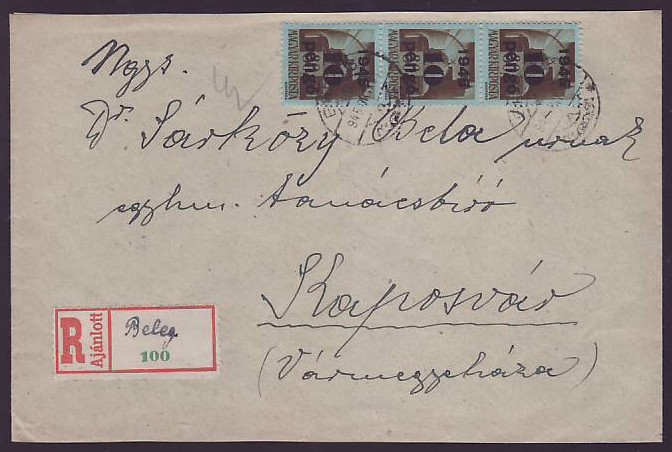 MAGYAR KIRÁLYI POSTA 1945 10 pengő
MAGYAR KIRÁLYI POSTA 1945 10 pengő
MAGYAR KIRÁLYI POSTA 1945 10 pengő
Ngys.
Dr. Sárközy Béla urnak
tanácsbíró
Kaposvár
(Vármegyeháza)
R Ajánlott
Beleg
100